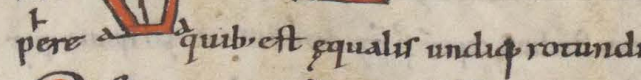 ł
pere a a quib; est ęqualis undiq; rotundi